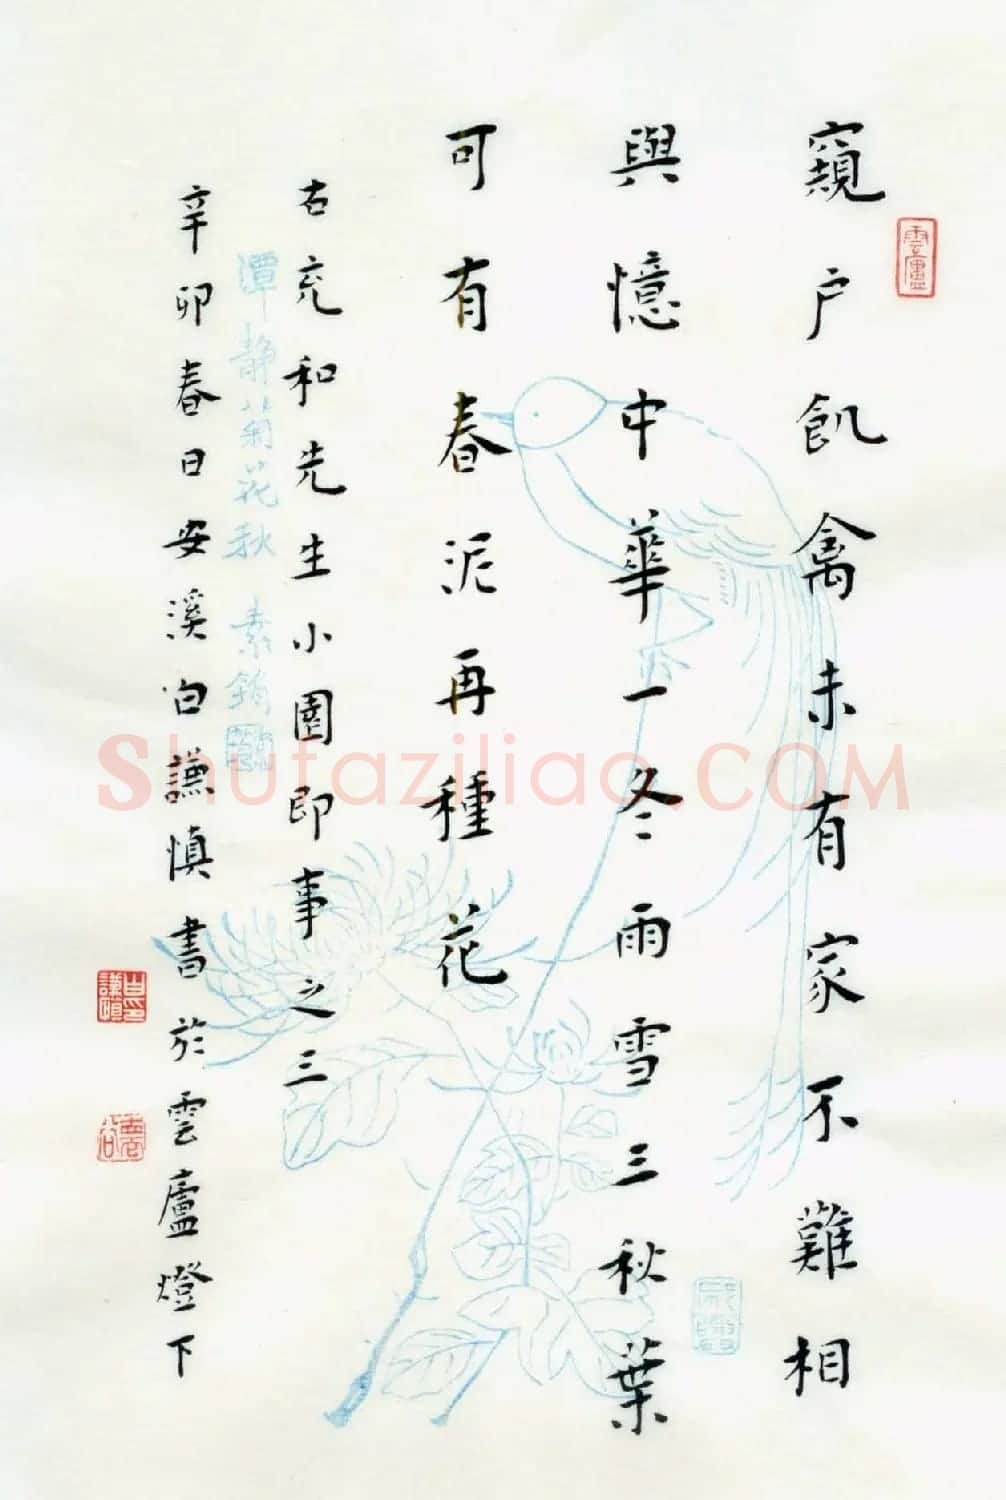 窺户飢禽未有家不難相
與憶中華一冬雨雪三秋葉
可有春泥再種花
右充和先生小園即事之三
辛卯春日安溪白謙慎書於雲廬燈下
雲廬
潭静菊花秋 素筠
白謙慎印
Shufaziliao.COM